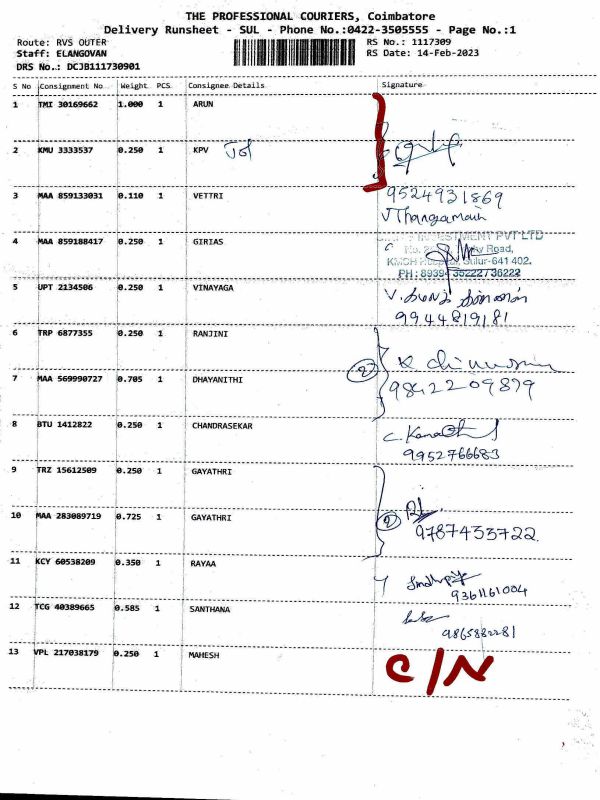 THE PROFESSIONAL COURIERS, Coimbatore
Delivery Runsheet - SUL - Phone No.:0422-3505555 - Page No.:1
Route: RVS OUTER RS No.: 1117309
Staff: ELANGOVAN RS Date: 14-Feb-2023
DRS No.: DCJB111730901
S No Consignment No Weight PCS Consignee Details Signature
1 TMI 30169662 1.000 1 ARUN
2 KMU 3333537 0.250 1 KPV
3 MAA 859133031 0.110 1 VETTRI 9524931869
V Thangamani
4 MAA 859188417 0.250 1 GIRIAS
INVESTMENT PVT LTD
Road,
Sulur-641 402.
PH: 8939 35222 / 36222
5 UPT 2134506 0.250 1 VINAYAGA
9944819181
6 TRP 6877355 0.250 1 RANJINI
7 MAA 569990727 0.705 1 DHAYANITHI 2 9842209899
8 BTU 1412822 0.250 1 CHANDRASEKAR
9952766683
9 TRZ 15612509 0.250 1 GAYATHRI
10 MAA 283089719 0.725 1 GAYATHRI 2
9787433722
11 KCY 60538209 0.350 1 RAYAA
9361161004
12 TCG 40389665 0.585 1 SANTHANA
9865882281
13 VPL 217038179 0.250 1 MAHESH C/N